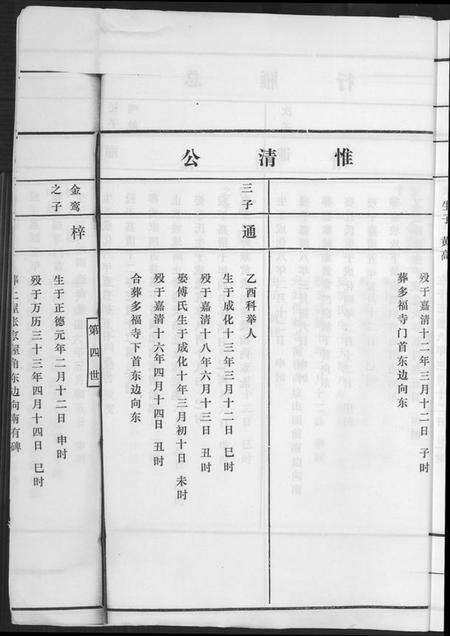 惟清公
殁于嘉清十二年三月十二日 子时
葬多福寺门首东边向东
三子
通
乙酉科举人
生于成化十三年三月十二日 巳时
殁于嘉清十八年六月十三日 丑时
娶傅氏生于成化十年三月初十日 未时
殁于嘉清十六年四月十四日 丑时
合葬多福寺下首东边向东
第四世
金鸾之子
梓
生于正德元年二月十二日 申时
殁于万历三十三年四月十四日 巳时
东边向南有碑